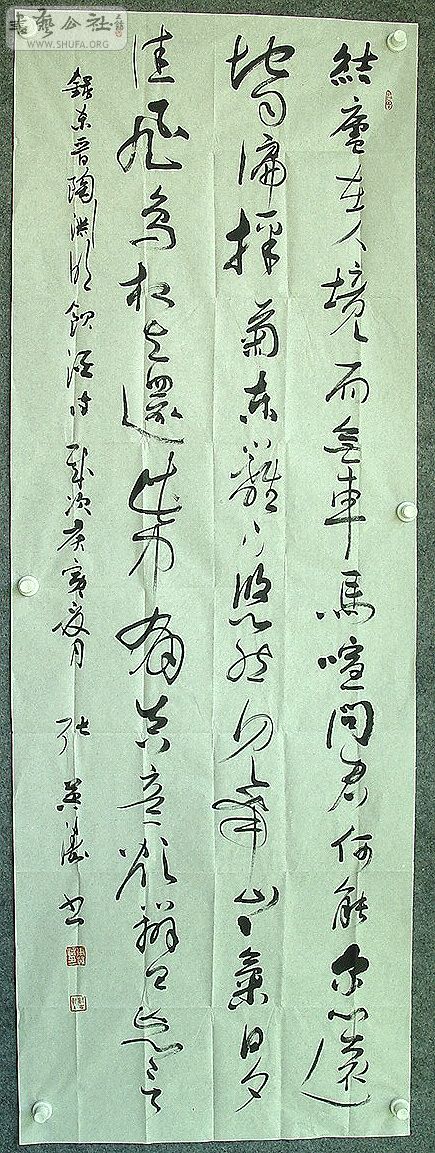 書藝公社
WWW.SHUFA.ORG
結廬在人境而無車馬喧問君何能尔心遠
地自偏採菊東籬下悠然見南山々氣日夕
佳飛鳥相与還此中有真意欲辨已忘言
錄東晉陶淵明飲酒詩 歲次庚寅夏月 张英 书